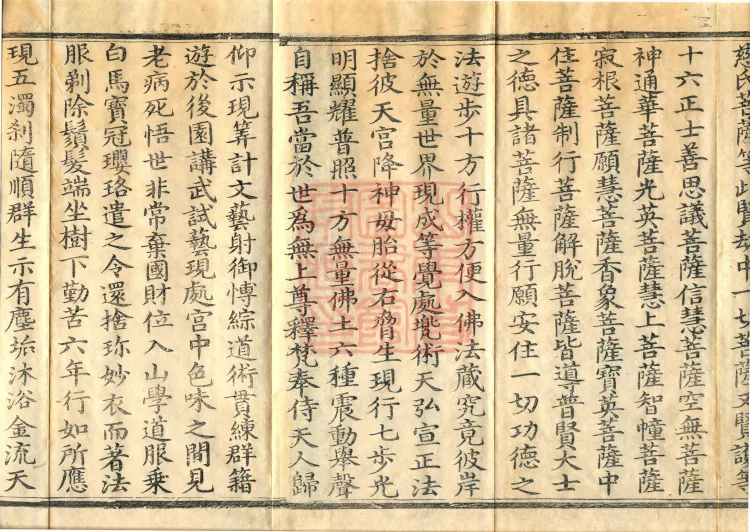 慈氏菩薩等此賢劫中一切菩薩又賢護等
十六正士善思議菩薩信慧菩薩空無菩薩
神通華菩薩光英菩薩慧上菩薩智幢菩薩
寂根菩薩願慧菩薩香象菩薩寶英菩薩中
住菩薩制行菩薩解脫菩薩皆導普賢大士
之德具諸菩薩無量行願安住一切功德之
法遊步十方行權方便入佛法藏究竟彼岸
於無量世界現成等覺處兜術天弘宣正法
捨彼天宮降神母胎從右脅生現行七步光
明顯耀普照十方無量佛土六種震動舉聲
自稱吾當於世為無上尊釋梵奉侍天人歸
仰示現筭計文藝射御愽綜道術貫練群籍
遊於後園講武試藝現處宮中色味之間見
老病死悟世非常棄國財位入山學道服乘
白馬寶冠瓔珞遣之令還捨珎妙衣而著法
服剃除鬚髮端坐樹下勤苦六年行如所應
現五濁刹隨順群生示有塵垢沐浴金流天